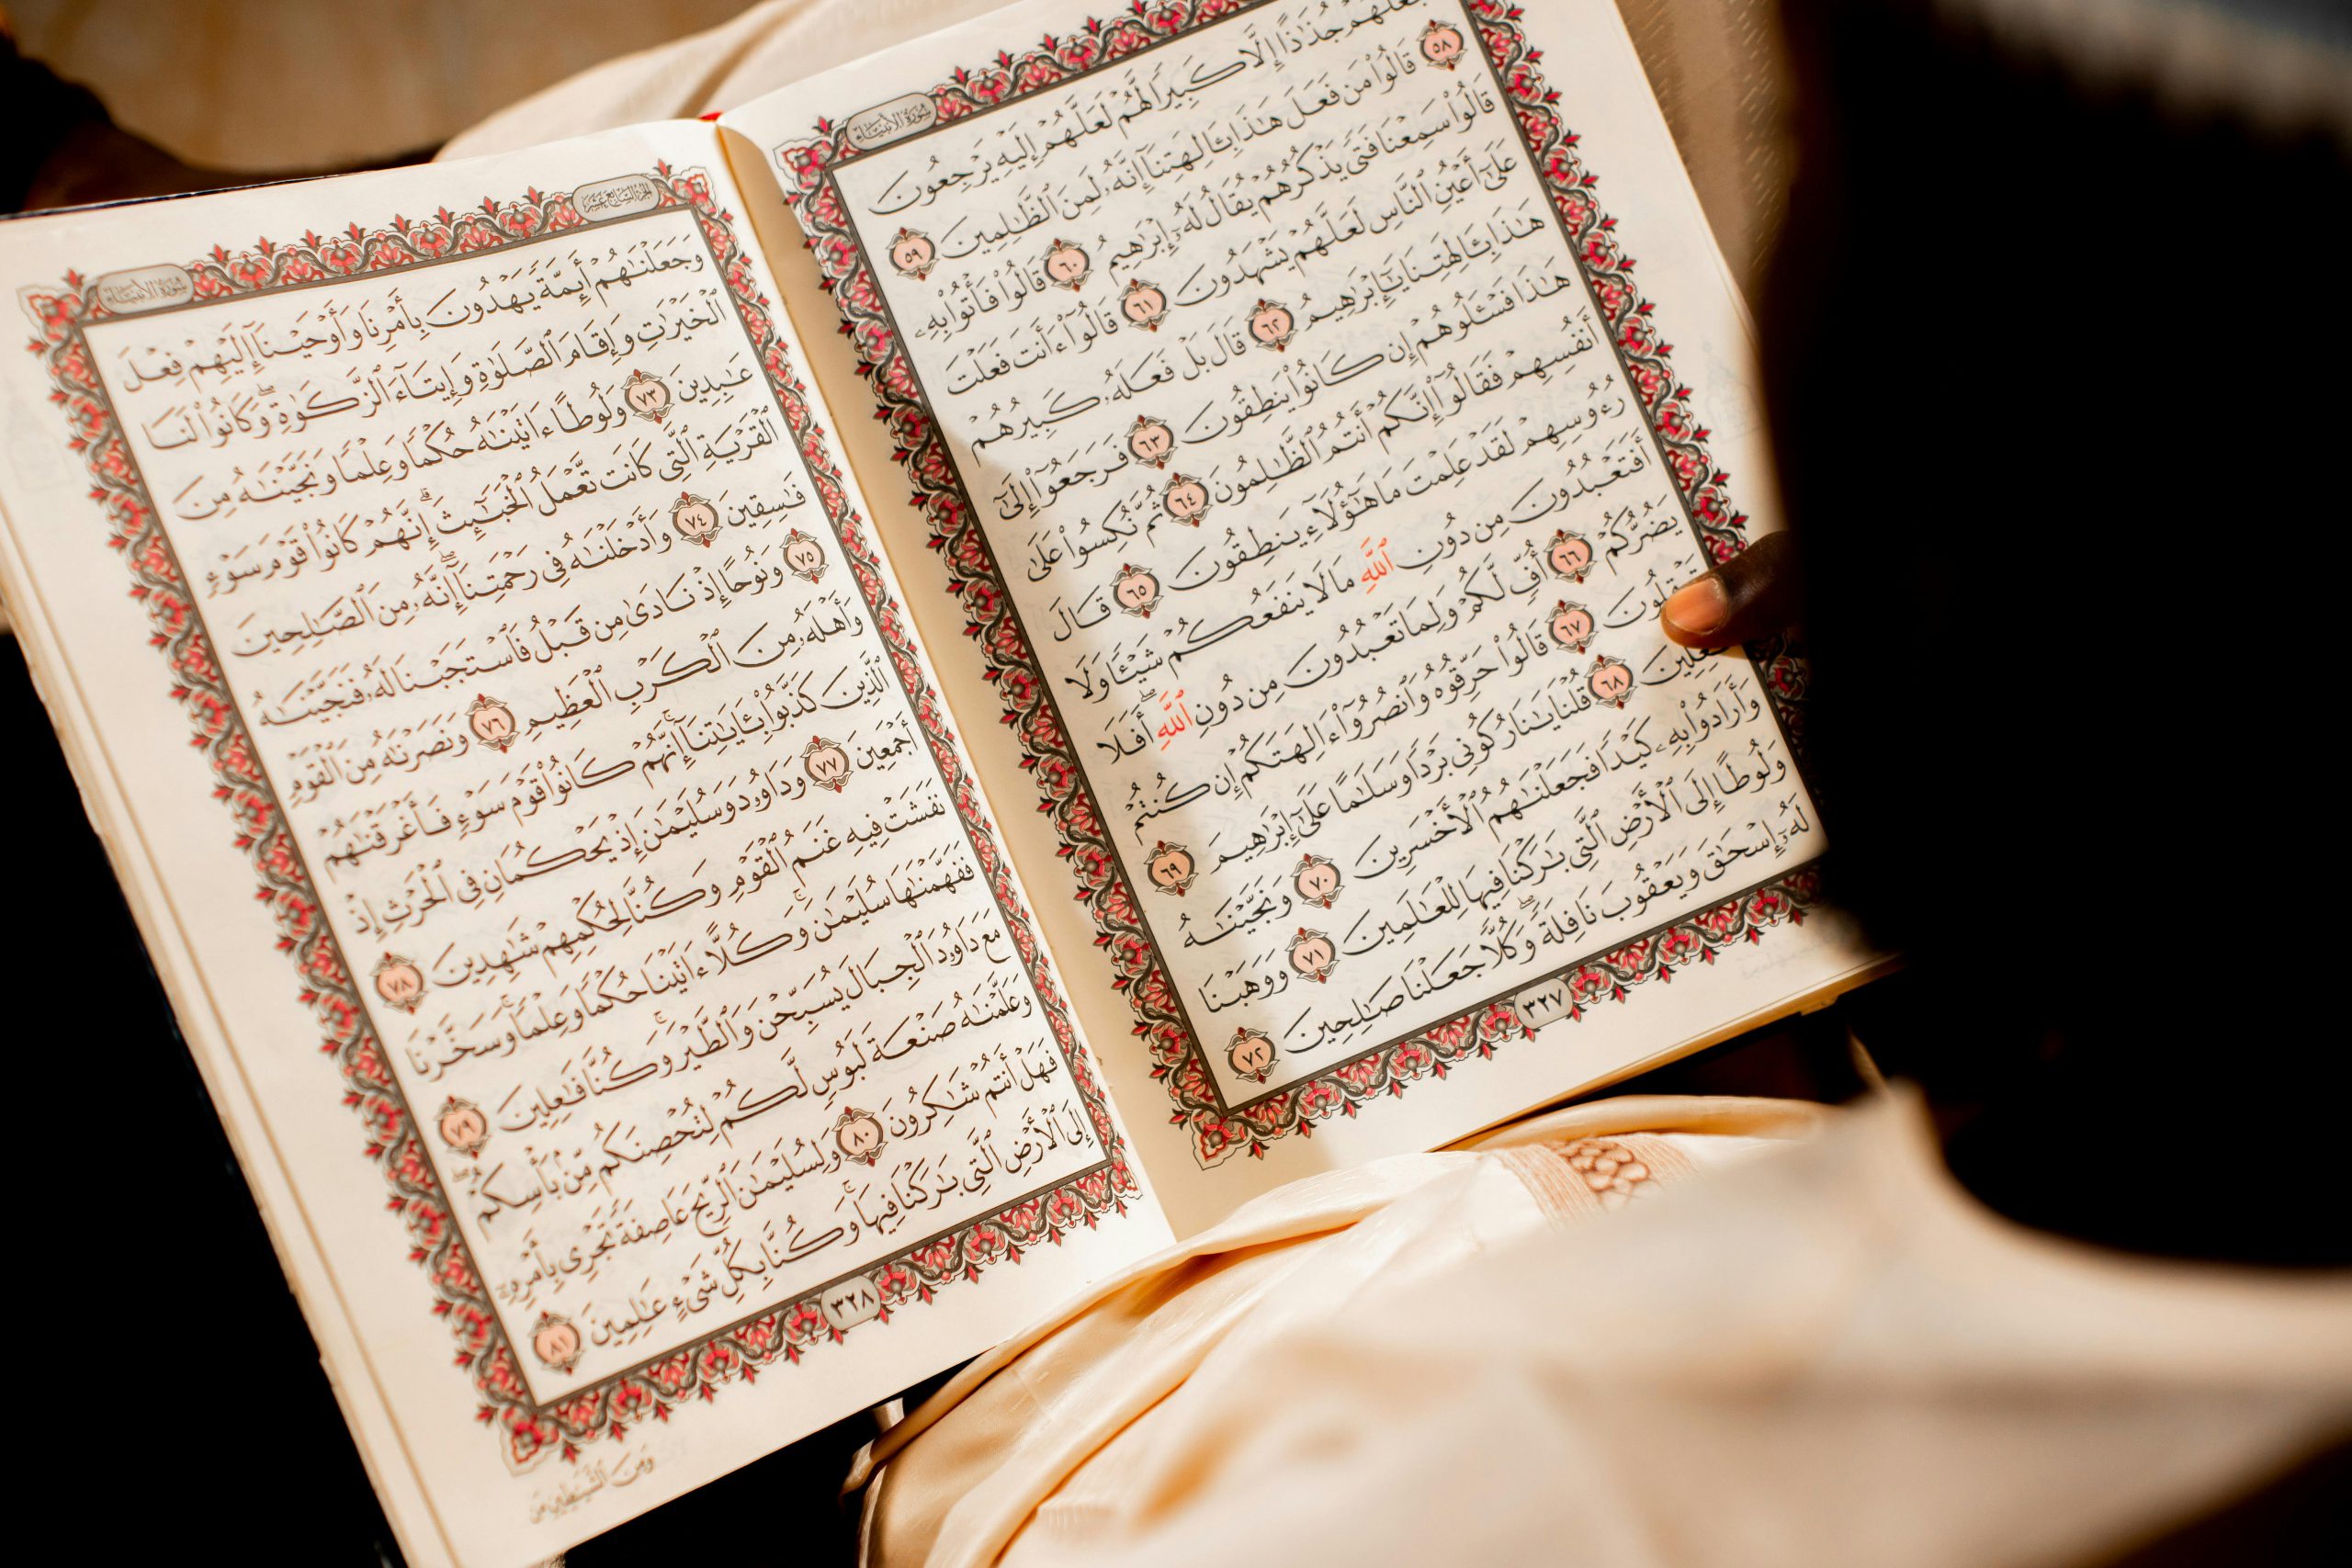 سُورَةُ الأَنبِيَاءِ
فَجَعَلَهُمْ جُذَٰذًا إِلَّا كَبِيرًا لَّهُمْ لَعَلَّهُمْ إِلَيْهِ يَرْجِعُونَ
٥٨ قَالُوا۟ مَن فَعَلَ هَـٰذَا بِـَٔالِهَتِنَآ إِنَّهُۥ لَمِنَ ٱلظَّـٰلِمِينَ ٥٩
قَالُوا۟ سَمِعْنَا فَتًى يَذْكُرُهُمْ يُقَالُ لَهُۥٓ إِبْرَٰهِيمُ ٦٠ قَالُوا۟ فَأْتُوا۟ بِهِۦ
عَلَىٰٓ أَعْيُنِ ٱلنَّاسِ لَعَلَّهُمْ يَشْهَدُونَ ٦١ قَالُوٓا۟ ءَأَنتَ فَعَلْتَ
هَـٰذَا بِـَٔالِهَتِنَا يَـٰٓإِبْرَٰهِيمُ ٦٢ قَالَ بَلْ فَعَلَهُۥ كَبِيرُهُمْ
هَـٰذَا فَسْـَٔلُوهُمْ إِن كَانُوا۟ يَنطِقُونَ ٦٣ فَرَجَعُوٓا۟ إِلَىٰٓ
أَنفُسِهِمْ فَقَالُوٓا۟ إِنَّكُمْ أَنتُمُ ٱلظَّـٰلِمُونَ ٦٤ ثُمَّ نُكِسُوا۟ عَلَىٰ
رُءُوسِهِمْ لَقَدْ عَلِمْتَ مَا هَـٰٓؤُلَآءِ يَنطِقُونَ ٦٥ قَالَ
أَفَتَعْبُدُونَ مِن دُونِ ٱللَّهِ مَا لَا يَنفَعُكُمْ شَيْـًٔا وَلَا
يَضُرُّكُمْ ٦٦ أُفٍّ لَّكُمْ وَلِمَا تَعْبُدُونَ مِن دُونِ ٱللَّهِ ۖ أَفَلَا
تَعْقِلُونَ ٦٧ قَالُوا۟ حَرِّقُوهُ وَٱنصُرُوٓا۟ ءَالِهَتَكُمْ إِن كُنتُمْ
فَـٰعِلِينَ ٦٨ قُلْنَا يَـٰنَارُ كُونِى بَرْدًا وَسَلَـٰمًا عَلَىٰٓ إِبْرَٰهِيمَ ٦٩
وَأَرَادُوا۟ بِهِۦ كَيْدًا فَجَعَلْنَـٰهُمُ ٱلْأَخْسَرِينَ ٧٠ وَنَجَّيْنَـٰهُ
وَلُوطًا إِلَى ٱلْأَرْضِ ٱلَّتِى بَـٰرَكْنَا فِيهَا لِلْعَـٰلَمِينَ ٧١ وَوَهَبْنَا
لَهُۥٓ إِسْحَـٰقَ وَيَعْقُوبَ نَافِلَةً ۖ وَكُلًّا جَعَلْنَا صَـٰلِحِينَ ٧٢
٣٢٧
الجُزْءُ السَّابِعَ عَشَرَ
سُورَةُ الأَنبِيَاءِ
وَجَعَلْنَـٰهُمْ أَئِمَّةً يَهْدُونَ بِأَمْرِنَا وَأَوْحَيْنَآ إِلَيْهِمْ فِعْلَ
ٱلْخَيْرَٰتِ وَإِقَامَ ٱلصَّلَوٰةِ وَإِيتَآءَ ٱلزَّكَوٰةِ ۖ وَكَانُوا۟ لَنَا
عَـٰبِدِينَ ٧٣ وَلُوطًا ءَاتَيْنَـٰهُ حُكْمًا وَعِلْمًا وَنَجَّيْنَـٰهُ مِنَ
ٱلْقَرْيَةِ ٱلَّتِى كَانَت تَّعْمَلُ ٱلْخَبَـٰٓئِثَ ۗ إِنَّهُمْ كَانُوا۟ قَوْمَ سَوْءٍ
فَـٰسِقِينَ ٧٤ وَأَدْخَلْنَـٰهُ فِى رَحْمَتِنَآ ۖ إِنَّهُۥ مِنَ ٱلصَّـٰلِحِينَ
٧٥ وَنُوحًا إِذْ نَادَىٰ مِن قَبْلُ فَٱسْتَجَبْنَا لَهُۥ فَنَجَّيْنَـٰهُ
وَأَهْلَهُۥ مِنَ ٱلْكَرْبِ ٱلْعَظِيمِ ٧٦ وَنَصَرْنَـٰهُ مِنَ ٱلْقَوْمِ
ٱلَّذِينَ كَذَّبُوا۟ بِـَٔايَـٰتِنَآ ۚ إِنَّهُمْ كَانُوا۟ قَوْمَ سَوْءٍ فَأَغْرَقْنَـٰهُمْ
أَجْمَعِينَ ٧٧ وَدَاوُۥدَ وَسُلَيْمَـٰنَ إِذْ يَحْكُمَانِ فِى ٱلْحَرْثِ إِذْ
نَفَشَتْ فِيهِ غَنَمُ ٱلْقَوْمِ وَكُنَّا لِحُكْمِهِمْ شَـٰهِدِينَ ٧٨
فَفَهَّمْنَـٰهَا سُلَيْمَـٰنَ ۚ وَكُلًّا ءَاتَيْنَا حُكْمًا وَعِلْمًا ۚ وَسَخَّرْنَا
مَعَ دَاوُۥدَ ٱلْجِبَالَ يُسَبِّحْنَ وَٱلطَّيْرَ ۚ وَكُنَّا فَـٰعِلِينَ ٧٩
وَعَلَّمْنَـٰهُ صَنْعَةَ لَبُوسٍ لَّكُمْ لِتُحْصِنَكُم مِّنۢ بَأْسِكُمْ ۖ
فَهَلْ أَنتُمْ شَـٰكِرُونَ ٨٠ وَلِسُلَيْمَـٰنَ ٱلرِّيحَ عَاصِفَةً تَجْرِى بِأَمْرِهِۦٓ
إِلَى ٱلْأَرْضِ ٱلَّتِى بَـٰرَكْنَا فِيهَا ۚ وَكُنَّا بِكُلِّ شَىْءٍ عَـٰلِمِينَ ٨١
٣٢٨
وَمِنَ ٱلشَّيَـٰطِينِ مَن